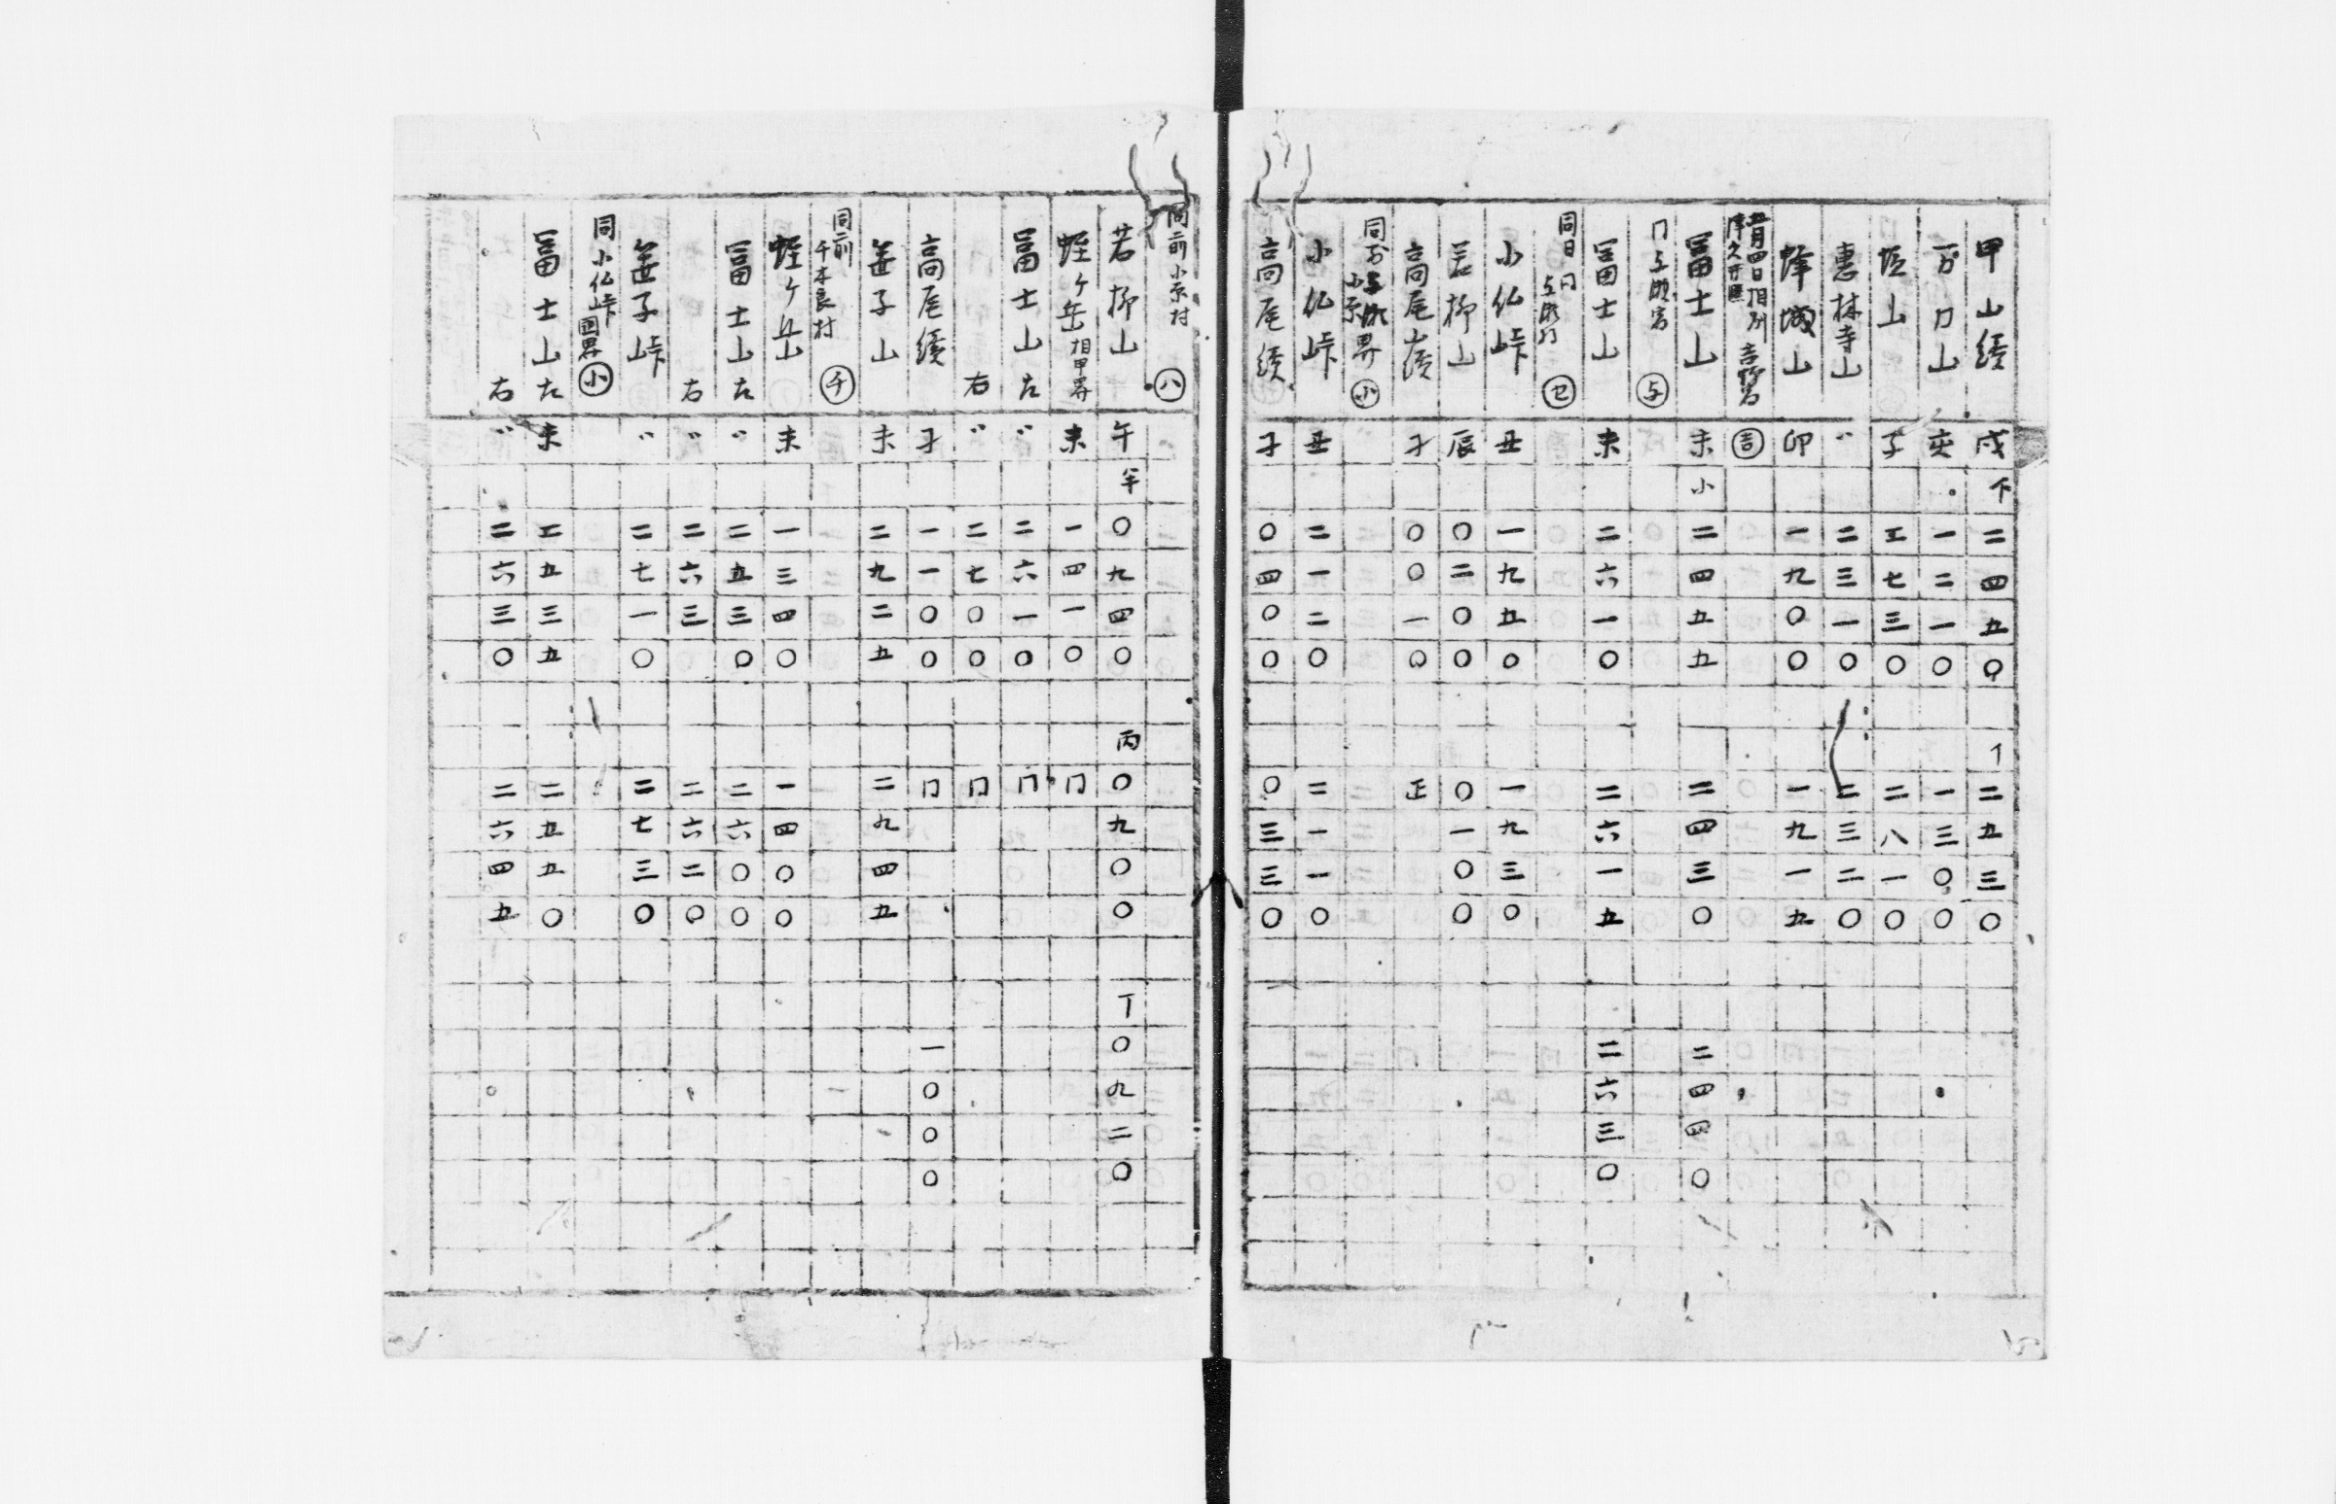 甲山續 戌 下 二四五〇 二五三〇
一二一〇 一三〇〇
山 子 二七三〇 二八一〇
惠林寺山 〃 二三一〇 二三二〇
蜂城山 卯 一九〇〇 一九一五
月四日相州 吉
冨士山 未 小 二四五五 二四三〇 二四四〇
与
冨士山 未 二六一〇 二六一五 二六三〇
同日
小仏峠 丑 一九五〇 一九三〇
若柳山 辰 〇二〇〇 〇一〇〇
高尾山續 子 〇〇一〇 正
同 小原 界 小
小仏峠 丑 二一二〇 二一一〇
高尾續 子 〇四〇〇 〇三三〇
同前小原村 八
若柳山 午 半 〇九四〇 丙 〇九〇〇 丁 〇九二〇
蛭ヶ岳 相甲界 未 一四一〇 冂
冨士山 左 〃 二六一〇 冂
右 〃 二七〇〇 冂
高尾續 子 一一〇〇 冂 一〇〇〇
笹子山 未 二九二五 二九四五
同前 千木良村 千
蛭ヶ岳 未 一三四〇 一四〇〇
冨士山 左 〃 二五三〇 二六〇〇
右 〃 二六三 二六二〇
笹子峠 〃 二七一〇 二七三〇
同小仏峠 国界 小
冨士山 左 未 二五三五 二五五〇
右 〃 二六三〇 二六四五